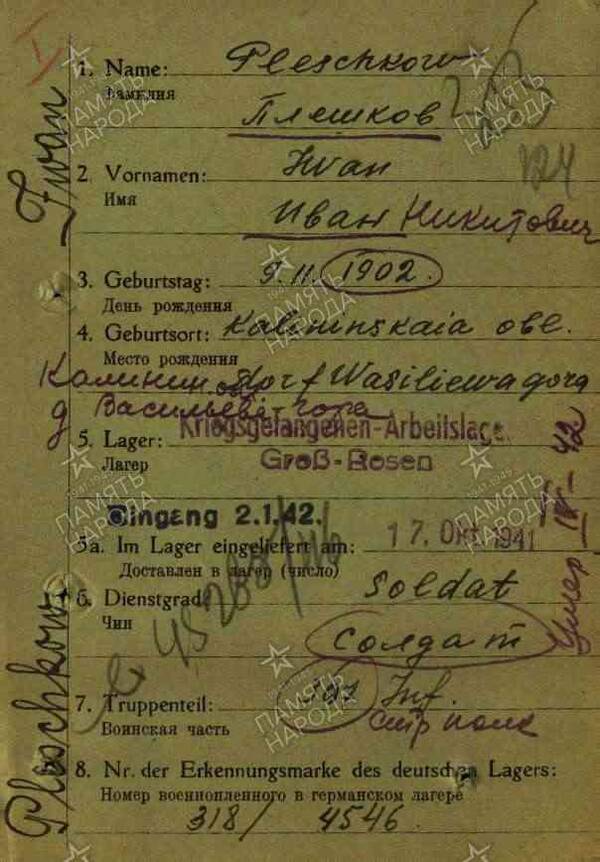 I
1. Name: Pleschkow
Фамилия
Плешков
2. Vornamen: Iwan
Имя
Иван Никитович
3. Geburtstag: 9.11.1902.
День рождения
4. Geburtsort: Kalininskaia obl.
Место рождения
dorf Wasiliewagora
Калинин. обл
д Васильеві-гора
5. Lager: Kriegsgefangenen-Arbeitslager
Лагерь
Groß-Rosen
Eingang 2.1.42.
5a. Im Lager eingeliefert am: 17. Okt. 1941
Доставлен в лагерь (число)
6. Dienstgrad: Soldat
Чин
солдат
7. Truppenteil: Inf.
Воинская часть
стр полк
8. Nr. der Erkennungsmarke des deutschen Lagers:
Номер военнопленного в германском лагере
318/ 4546
Iwan
Pleschkow
умер IV-42
ПАМЯТЬ
НАРОДА